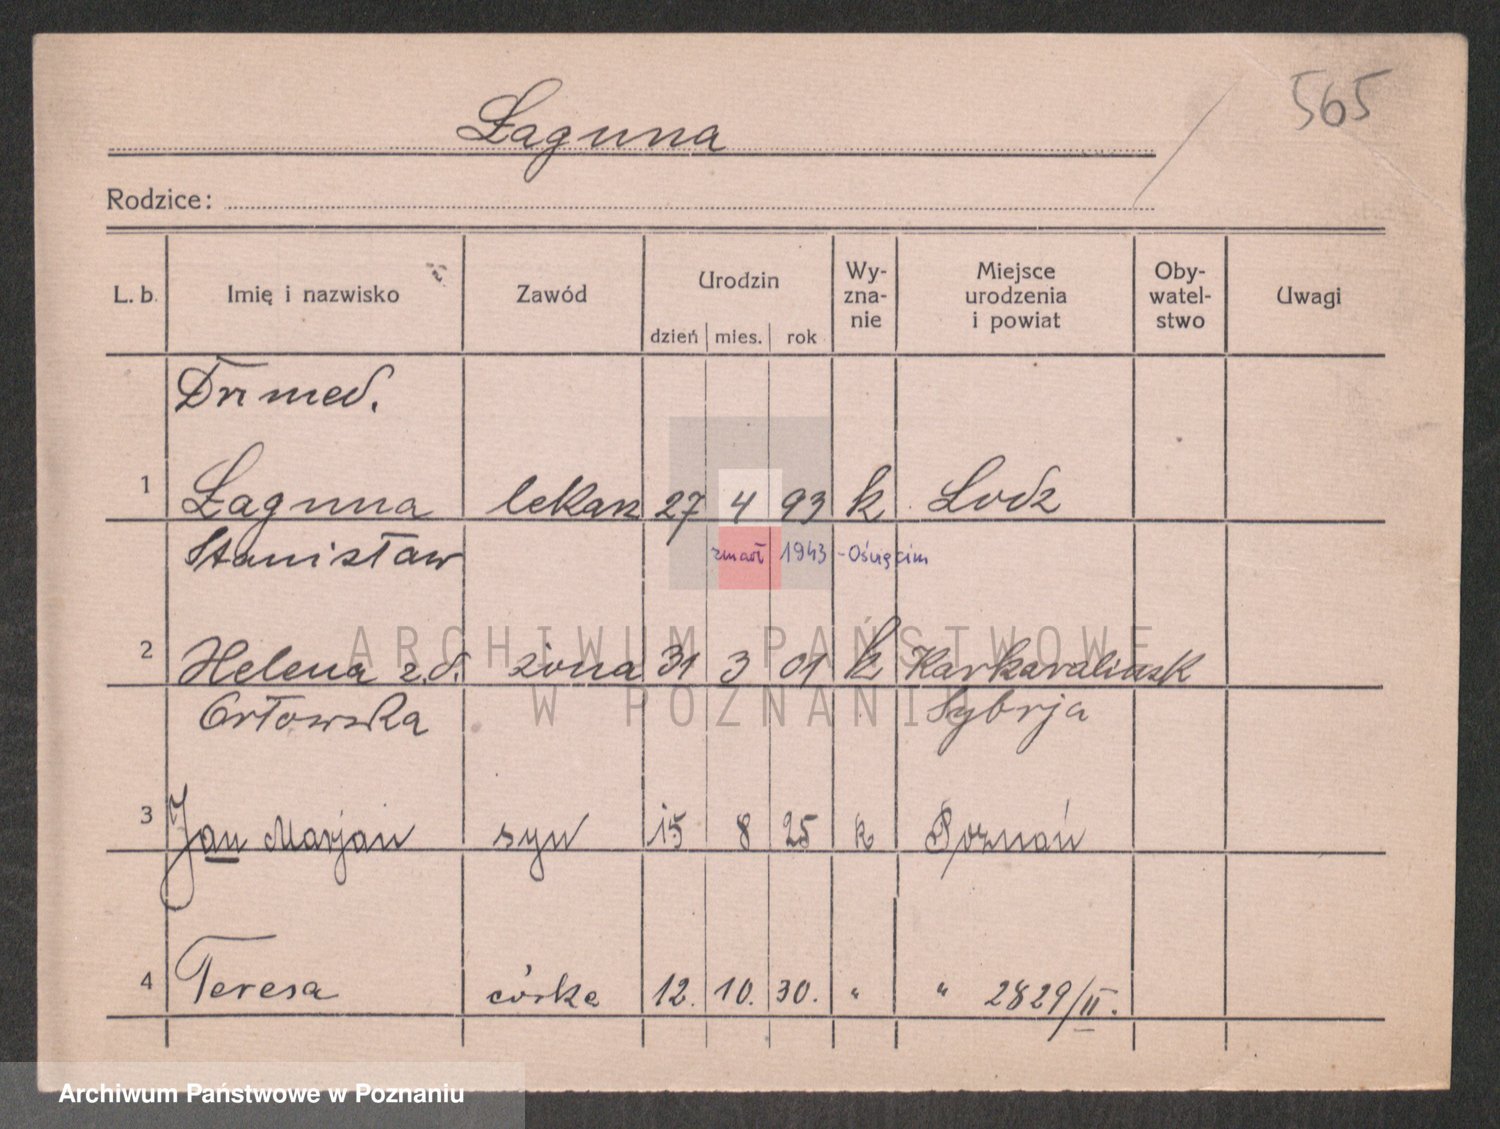 565
Łaguna
Rodzice:
L. b. Imię i nazwisko Zawód Urodzin dzień mies. rok Wy-zna-nie Miejsce urodzenia i powiat Oby-watel-stwo Uwagi
Dr. med.
1 Łaguna lekarz 27 4 93 k Lodz
Stanisław zmarł 1943 - Oświęcim
2 Helena z.d. żona 31 3 01 k Karkaralinsk
Orłowska Sybrja
3 Jan Marjan syn 15 8 25 k Poznań
4 Teresa córka 12. 10. 30. " " 2829/II.
ARCHIWUM PAŃSTWOWE
W POZNANIU
Archiwum Państwowe w Poznaniu